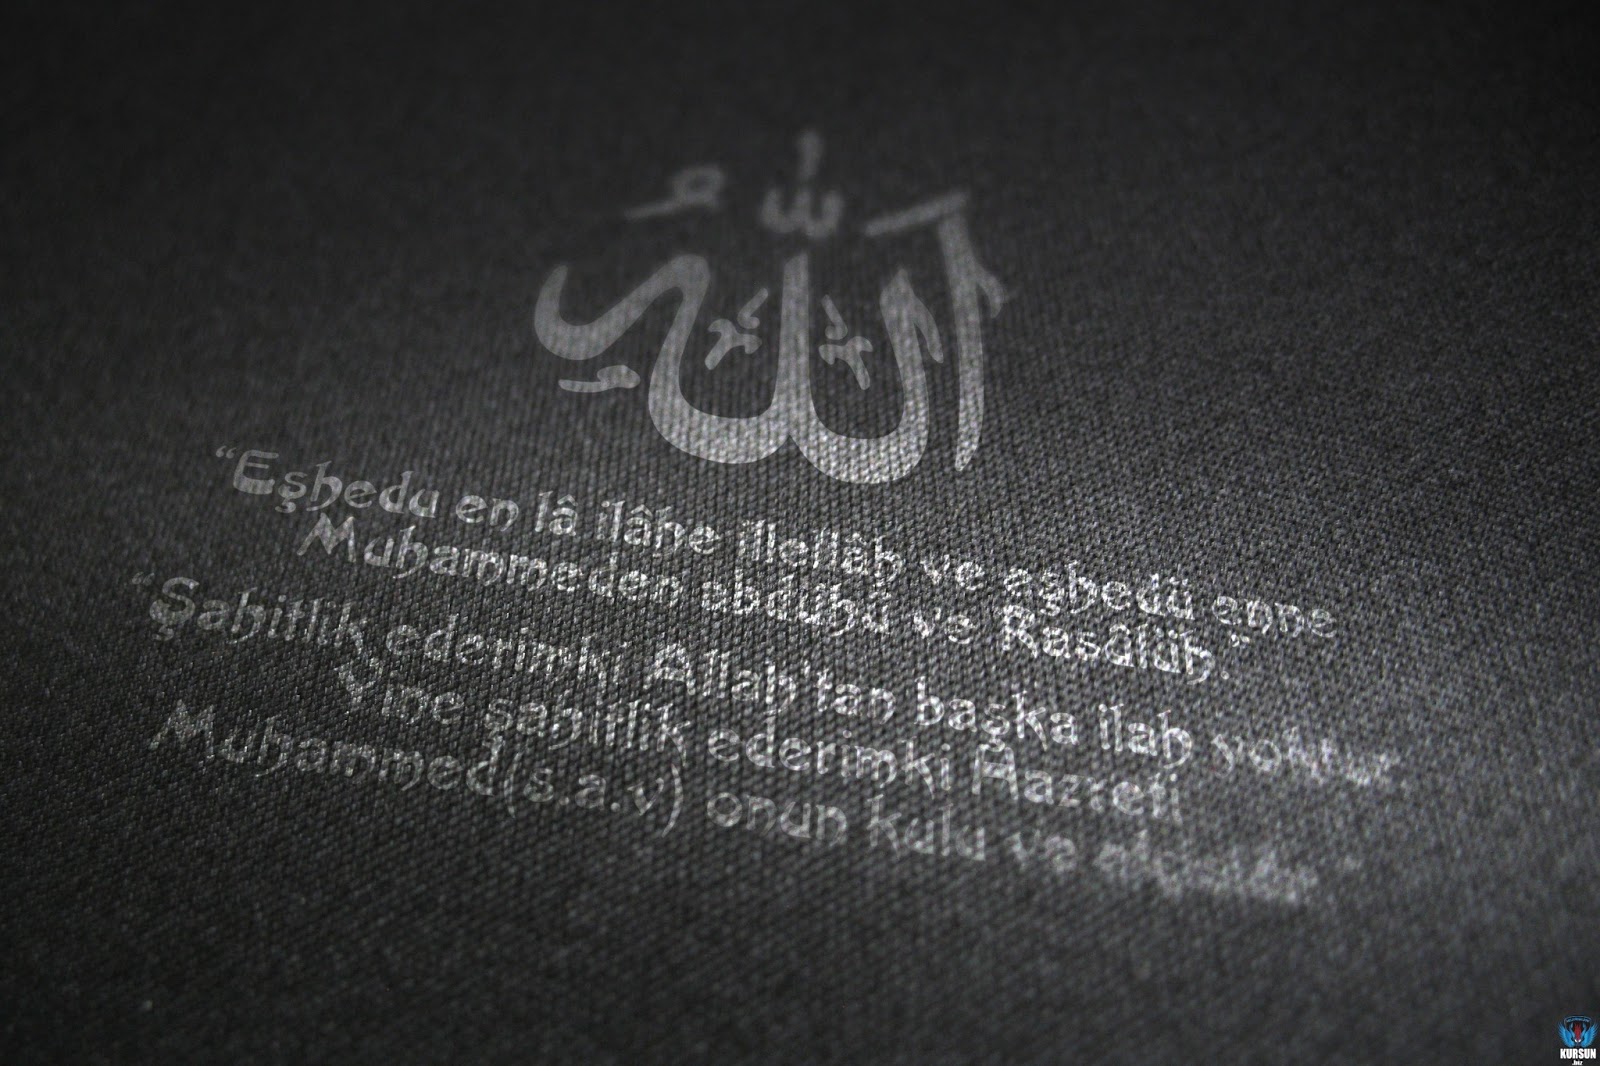 الله
“Eşhedu en lâ ilâhe illellâh ve eşhedü enne
Muhammeden abdühü ve Rasâlüh.”
“Şahitlik ederimki Allah'tan başka ilah yoktur.
Yine şahitlik ederimki Hazreti
Muhammed(s.a.v) onun kulu ve elçisidir.”
KURSUN
.biz